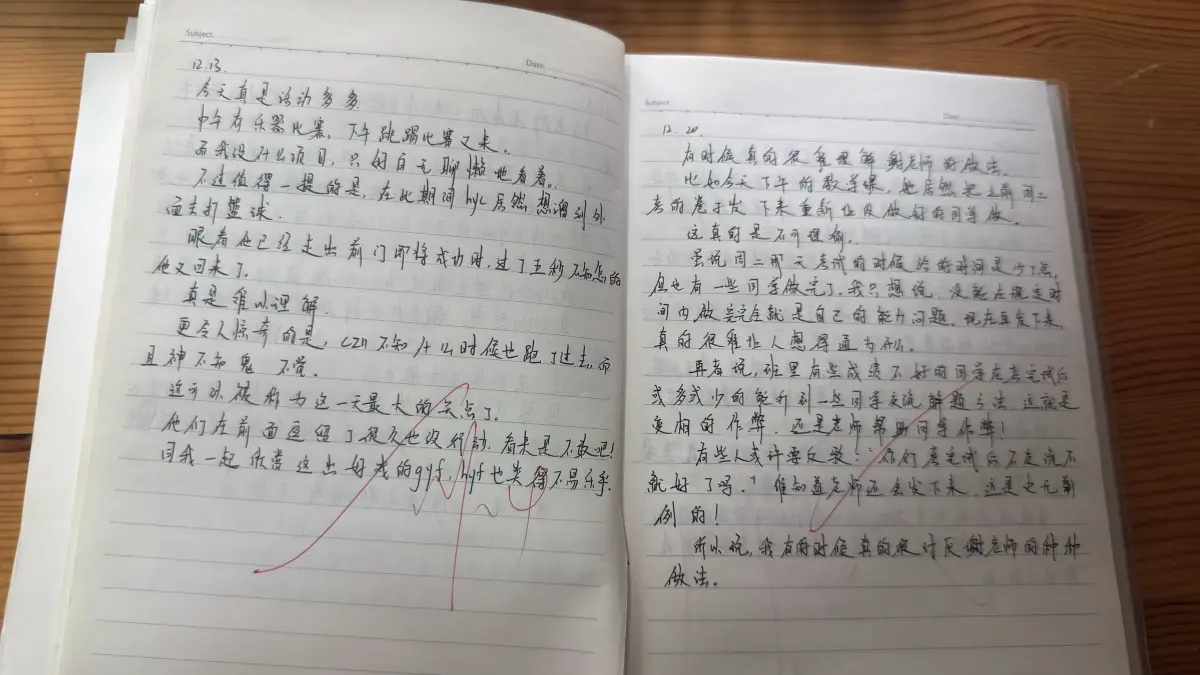 Subject.
Date.
12.13.
今天真是活动多多.
中午有乐器比赛，下午跳踢比赛又来。
而我没什么项目，只好百无聊赖地看着。
不过值得一提的是，在此期间hyc居然想溜到外
面去打篮球.
眼看他已经走出前门即将成功时，过了五秒不知怎的
他又回来了.
真是难以理解.
更令人惊奇的是，czn不知什么时候也跑了过去，而
且神不知鬼不觉.
这可以被称为这一天最大的笑点了.
他们在前面逗留了很久也没行动，看来是不敢吧！
同我一起欣赏这出好戏的gyf，hyf也笑得不易乐乎.
Subject
Date
12.20.
有时候真的很难理解谢老师的做法.
比如今天下午的数学课，她居然把之前周二
考的卷子发下来重新让没做好的同学做.
这真的是不可理喻.
虽说周二那天考试的时候给的时间是少了点，
但也有一些同学做完了.我只想说，没能在规定时
间内做完完全就是自己的能力问题.现在再发下来，
真的很难让人想得通为什么.
再者说，班里有些成绩不好的同学在考完试后
或多或少的能和别一些同学交流解题方法.这就是
变相的作弊.还是老师帮助同学作弊！
有些人或许要反驳：“你们考完试后不交流不
就好了吗.”谁知道老师还会发下来，这是史无前
例的！
所以说，我有的时候真的很讨厌谢老师的种种
做法。